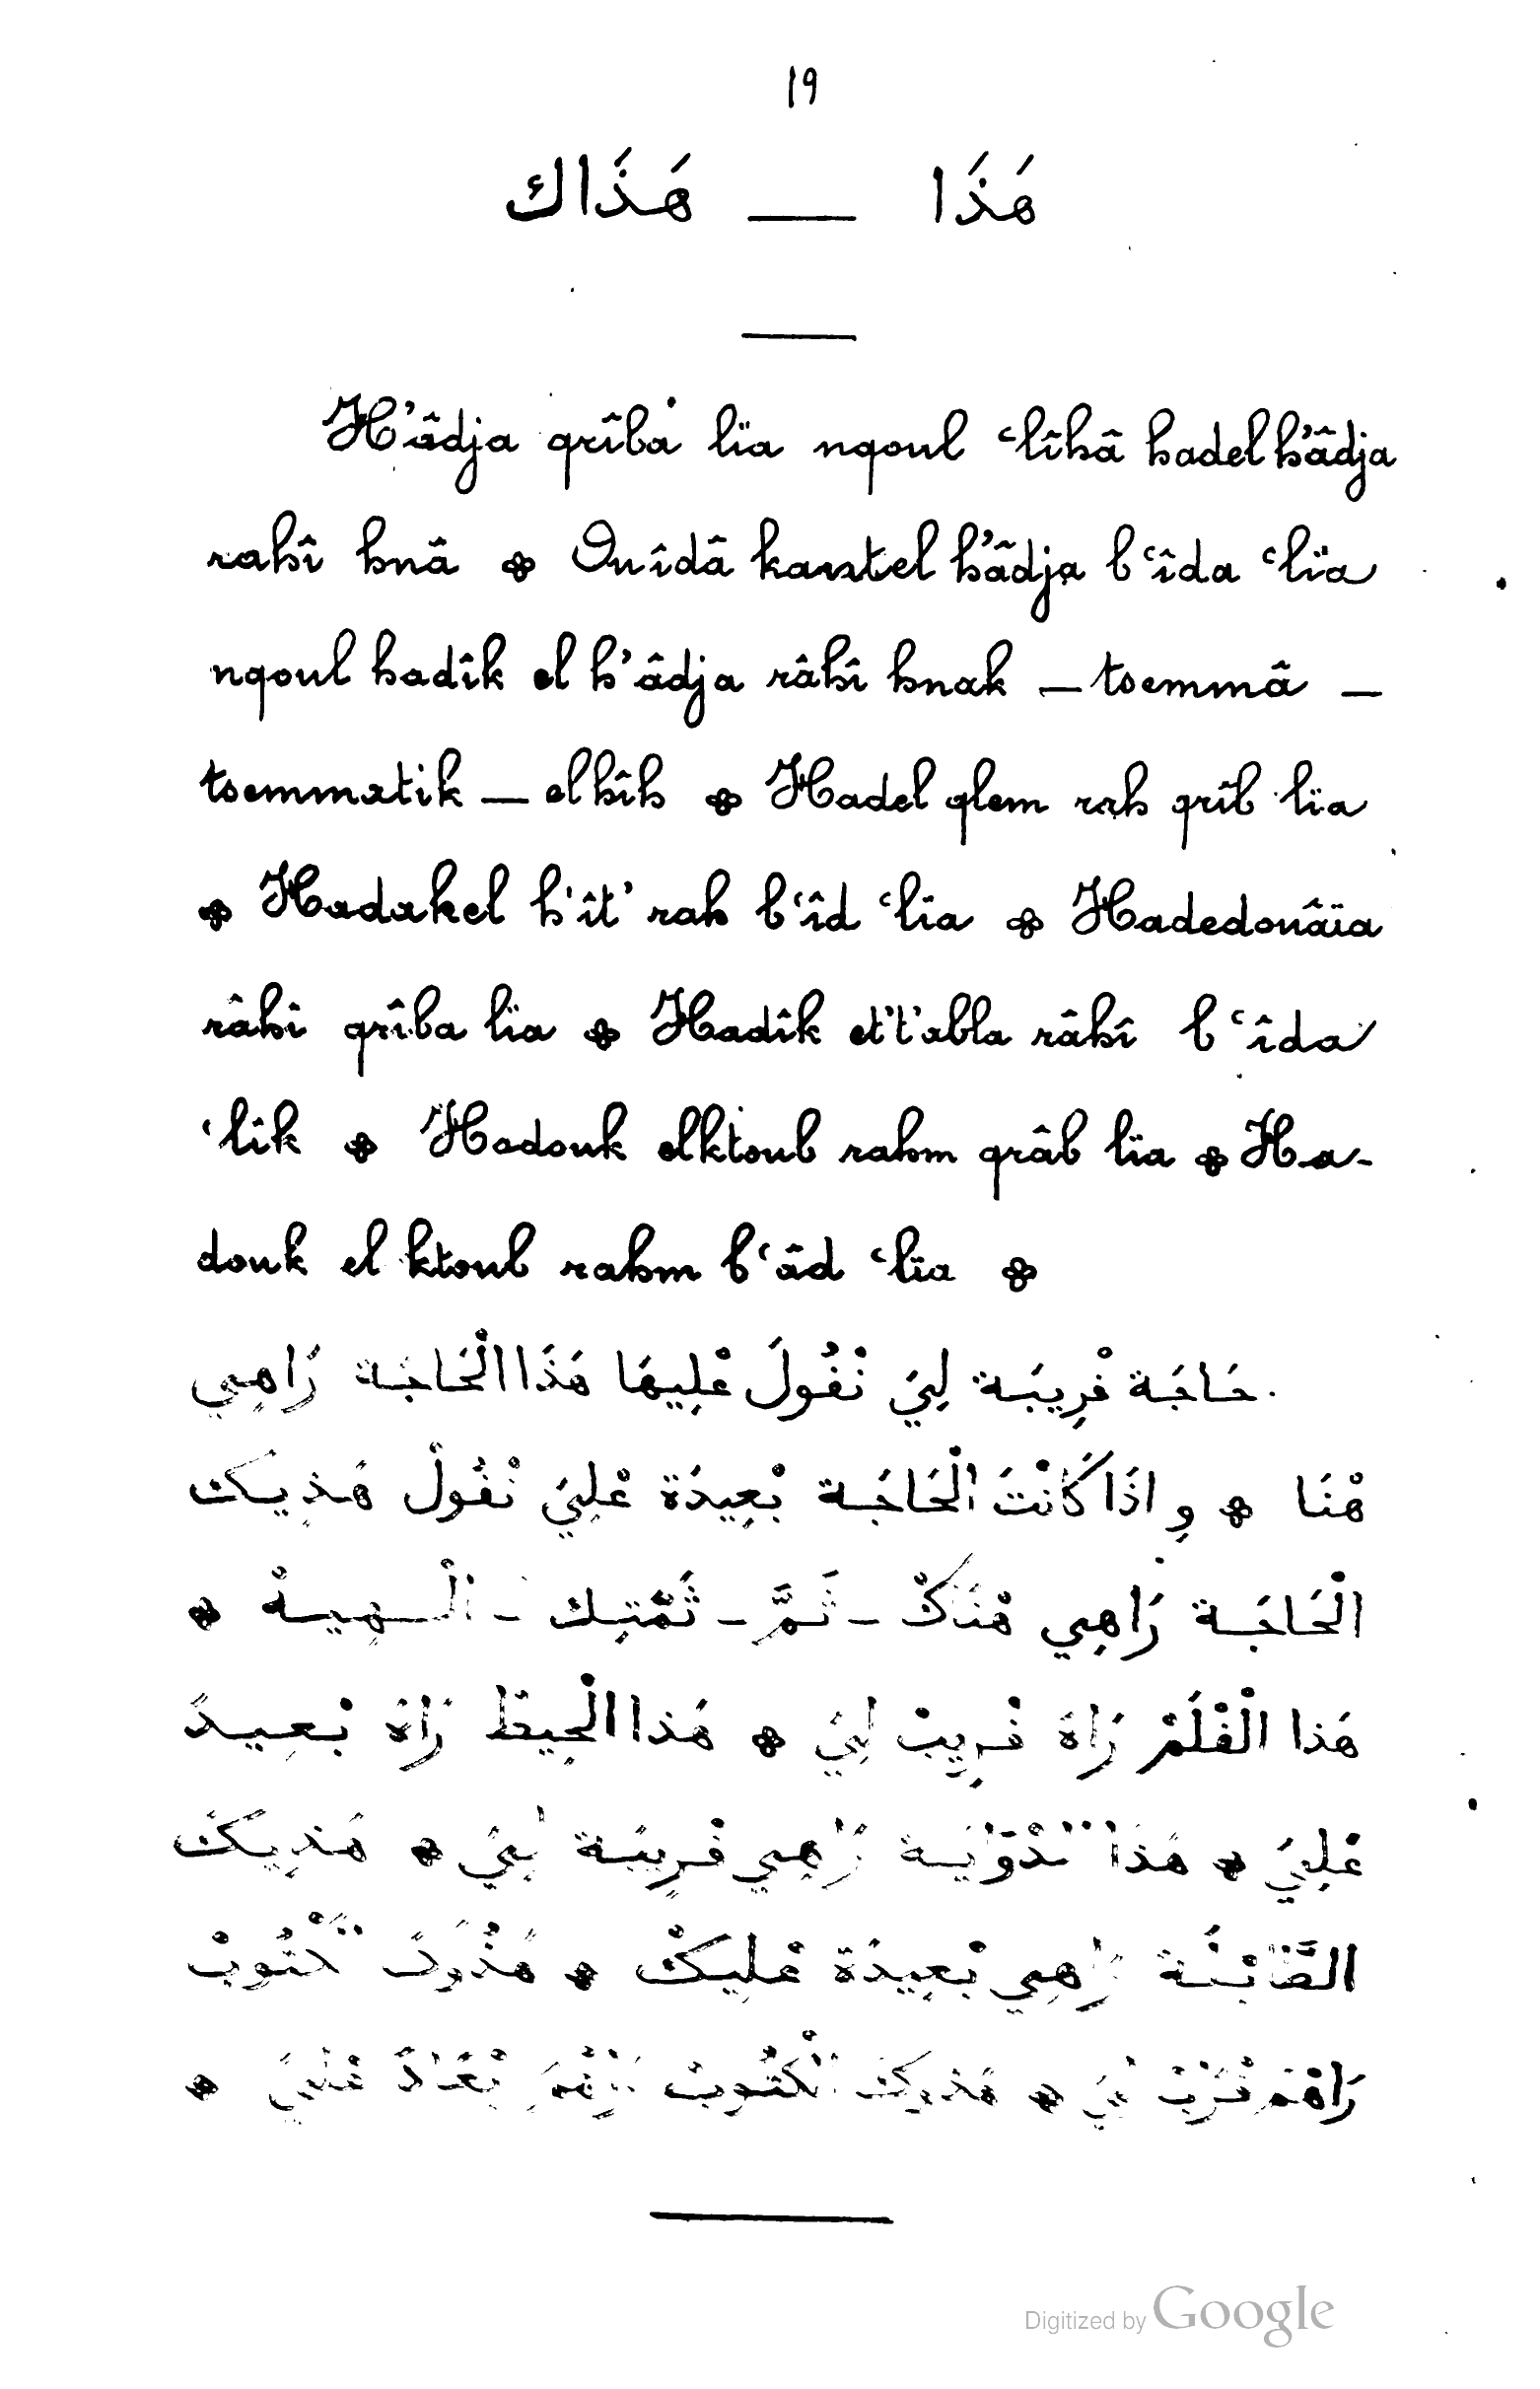 19
هَذَا — هَذَاك
H'âdja qrîba lïa nqoul ʿlîhâ hadel h'âdja
rahî hnâ ❖ Ou îdâ kantel h'âdja bʿîda ʿlïa
nqoul hadîk el h'âdja râhî hnak — tsemmâ —
tsemmatik — el hîh ❖ Hadel qlem rah qrîb lïa
❖ Hadakel h'ît' rah bʿîd ʿlïa ❖ Hadedouâïa
râhî qrîba lïa ❖ Hadîk et't'abla râhî bʿîda
ʿlîk ❖ Hadouk elktoub rahm qrâb lïa ❖ Ha-
douk el ktoub rahm bʿâd ʿlïa ❖
حَاجَة ڧْرِيبَة لِيَ نْڧُولَ عْلِيهَا هَذَا الْحَاجَة رَاهِي
هْنَا ❖ وِ اذَا كَانْتَ الْحَاجَة بْعِيدَة عْلِيَ نْڧُولْ هَذِيكَ
الْحَاجَة رَاهِي هْنَاكْ - ثَمَّ - ثَمَّتِك - الْهِيهْ ❖
هَذا الْڧْلَمْ رَاهْ ڧْرِيبْ لِيَ ❖ هَذا الْحِيطْ رَاهْ بْعِيدْ
عْلِيَ ❖ هَذَا الدْوَايَة رَاهِي ڧْرِيبَة لِيَ ❖ هَذِيكَ
الطَّابْلَة رَاهِي بْعِيدَة عْلِيكْ ❖ هَذُوكَ الْكْتُوبْ
رَاهْمْ ڧْرَابْ لِيَ ❖ هَذُوكَ الْكْتُوبْ رَاهْمْ بْعَادْ عْلِيَ ❖
Digitized by Google